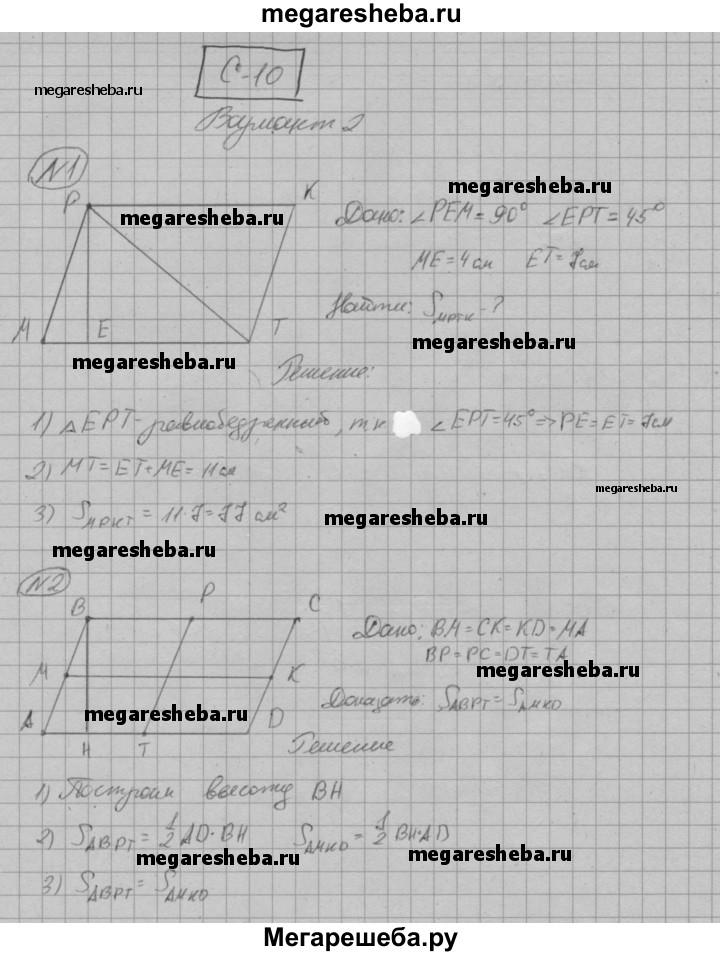 megaresheba.ru
С-10
megaresheba.ru
Вариант 2
N1
P K
megaresheba.ru
megaresheba.ru
Дано: ∠PEM = 90° ∠EPT = 45°
ME = 4 см ET = 7 см
Найти: S_MPTK - ?
M E T
megaresheba.ru
megaresheba.ru
Решение:
1) △EPT - равнобедренный, т к ∠EPT = 45° ⇒ PE = ET = 7 см
2) MT = ET + ME = 11 см
megaresheba.ru
3) S_MPKT = 11·7 = 77 см²
megaresheba.ru
megaresheba.ru
N2
B P C
Дано: BM = CK = KD = MA
BP = PC = DT = TA
M K
megaresheba.ru
Доказать: S_ABPT = S_AMKD
megaresheba.ru
A H T D
Решение
1) Построим высоту BH
2) S_ABPT = 1/2 AD·BH S_AMKD = 1/2 BH·AD
megaresheba.ru
megaresheba.ru
3) S_ABPT = S_AMKD
Мегарешеба.ру